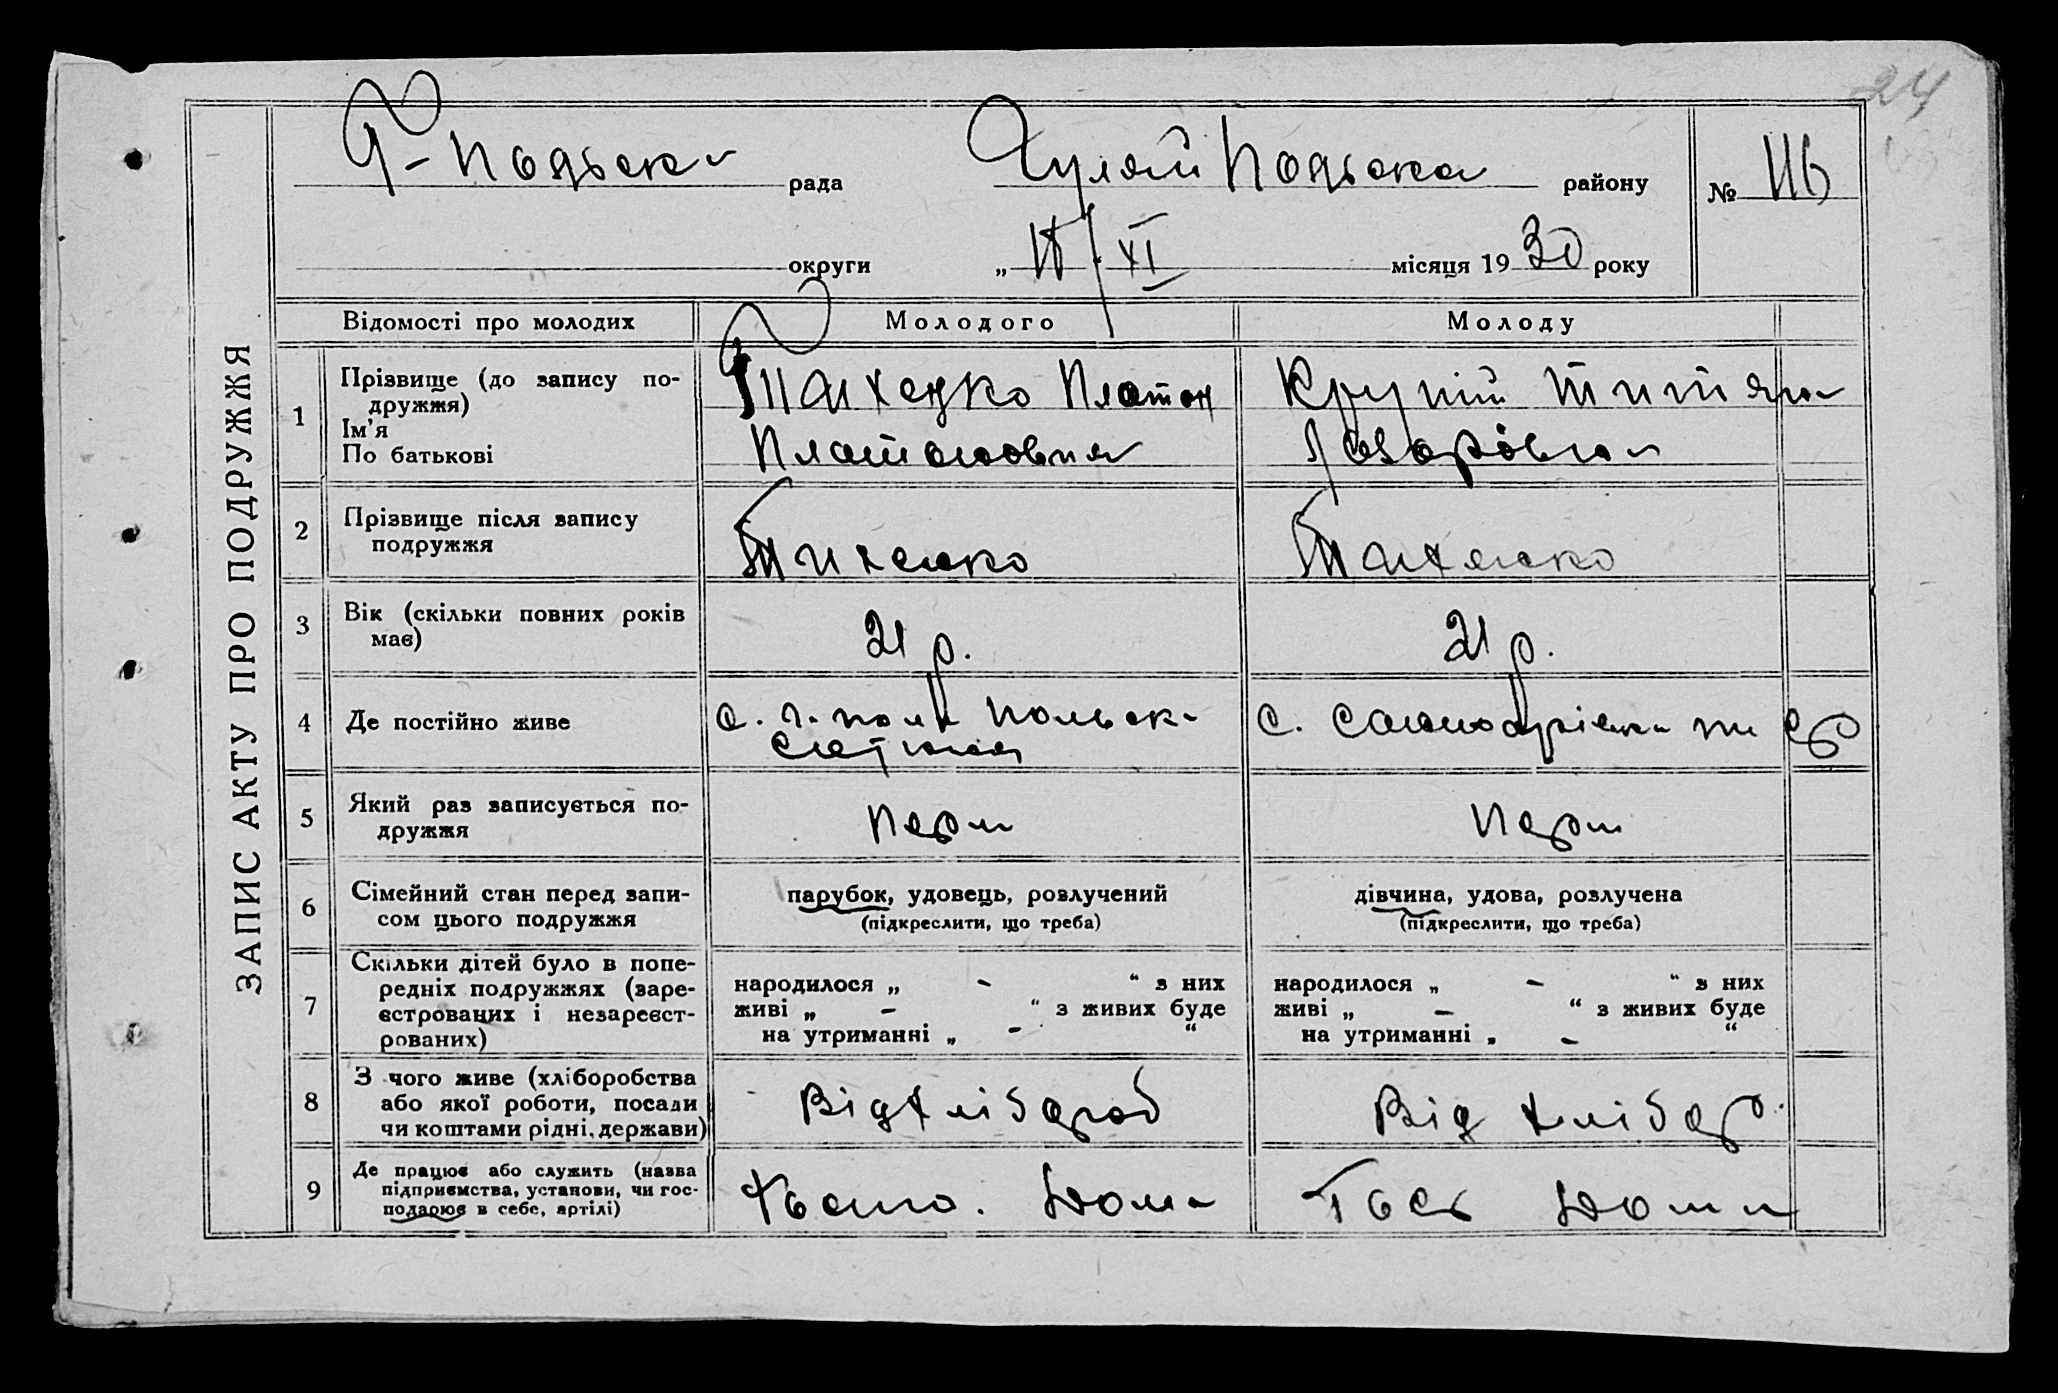 24
Г-Польска рада Гуляй Польська району № 116
округи „18/XI місяця 1930 року
ЗАПИС АКТУ ПРО ПОДРУЖЖЯ
Відомості про молодих Молодого Молоду
1 Прізвище (до запису по-
дружжя)
Ім'я
По батькові
Тихенко Платон
Платонович
Крупій Титяна
Лазарівна
2 Прізвище після запису
подружжя
Тихенко Тихенко
3 Вік (скільки повних років
має)
21 р. 21 р.
4 Де постійно живе
с. г. поле Польск.
с.
5 Який раз записується по-
дружжя
Перш Перш
6 Сімейний стан перед запи-
сом цього подружжя
парубок, удовець, розлучений
(підкреслити, що треба)
дівчина, удова, розлучена
(підкреслити, що треба)
7 Скільки дітей було в попе-
редніх подружжях (заре-
єстрованих і незареєст-
рованих)
народилося „ - “ з них
живі „ - “ з живих буде
на утриманні „ - “
народилося „ - “ з них
живі „ - “ з живих буде
на утриманні „ - “
8 З чого живе (хліборобства
або якої роботи, посади
чи коштами рідні, держави)
Від хліборob Від хлібор.
9 Де працює або служить (назва
підприємства, установи, чи гос-
подарює в себе, артілі)
дома дома